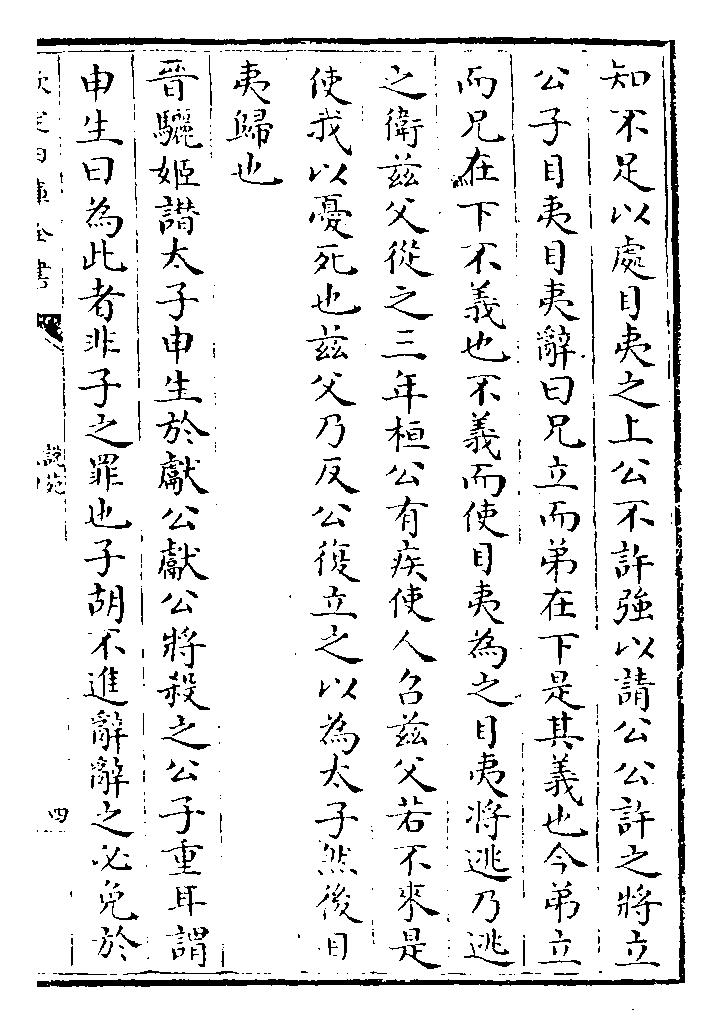 知不足以處目夷之上公不許強以請公公許之將立
公子目夷目夷辭曰兄立而弟在下是其義也今弟立
而兄在下不義也不義而使目夷為之目夷將逃乃逃
之衛茲父從之三年桓公有疾使人召茲父若不來是
使我以憂死也茲父乃反公復立之以為太子然後目
夷歸也
晉驪姬譖太子申生於獻公獻公將殺之公子重耳謂
申生曰為此者非子之罪也子胡不進辭辭之必免於
欽定四庫全書
說苑
四